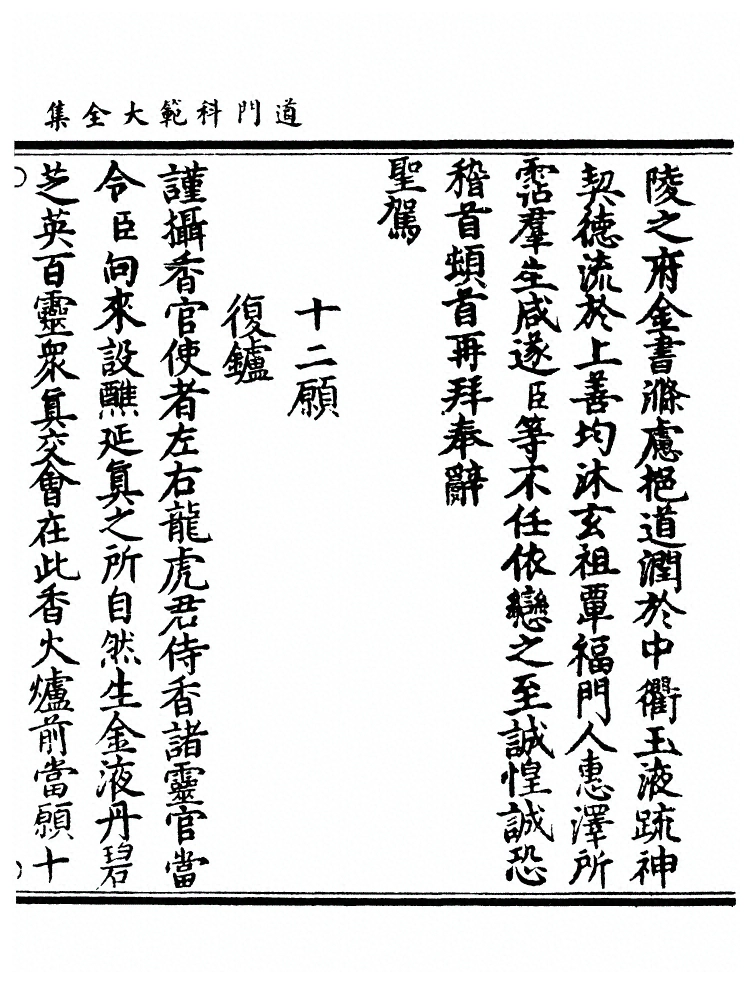 道門科範大全集
陵之府金書滌慮挹道潤於中衢玉液疏神
契德流於上善均沐玄祖覃福門人惠澤所
霑羣生咸遂臣等不任依戀之至誠惶誠恐
稽首頓首再拜奉辭
聖駕
十二願
復鑪
謹攝香官使者左右龍虎君侍香諸靈官當
令臣向來設醮延真之所自然生金液丹碧
芝英百靈眾真交會在此香火爐前當願十